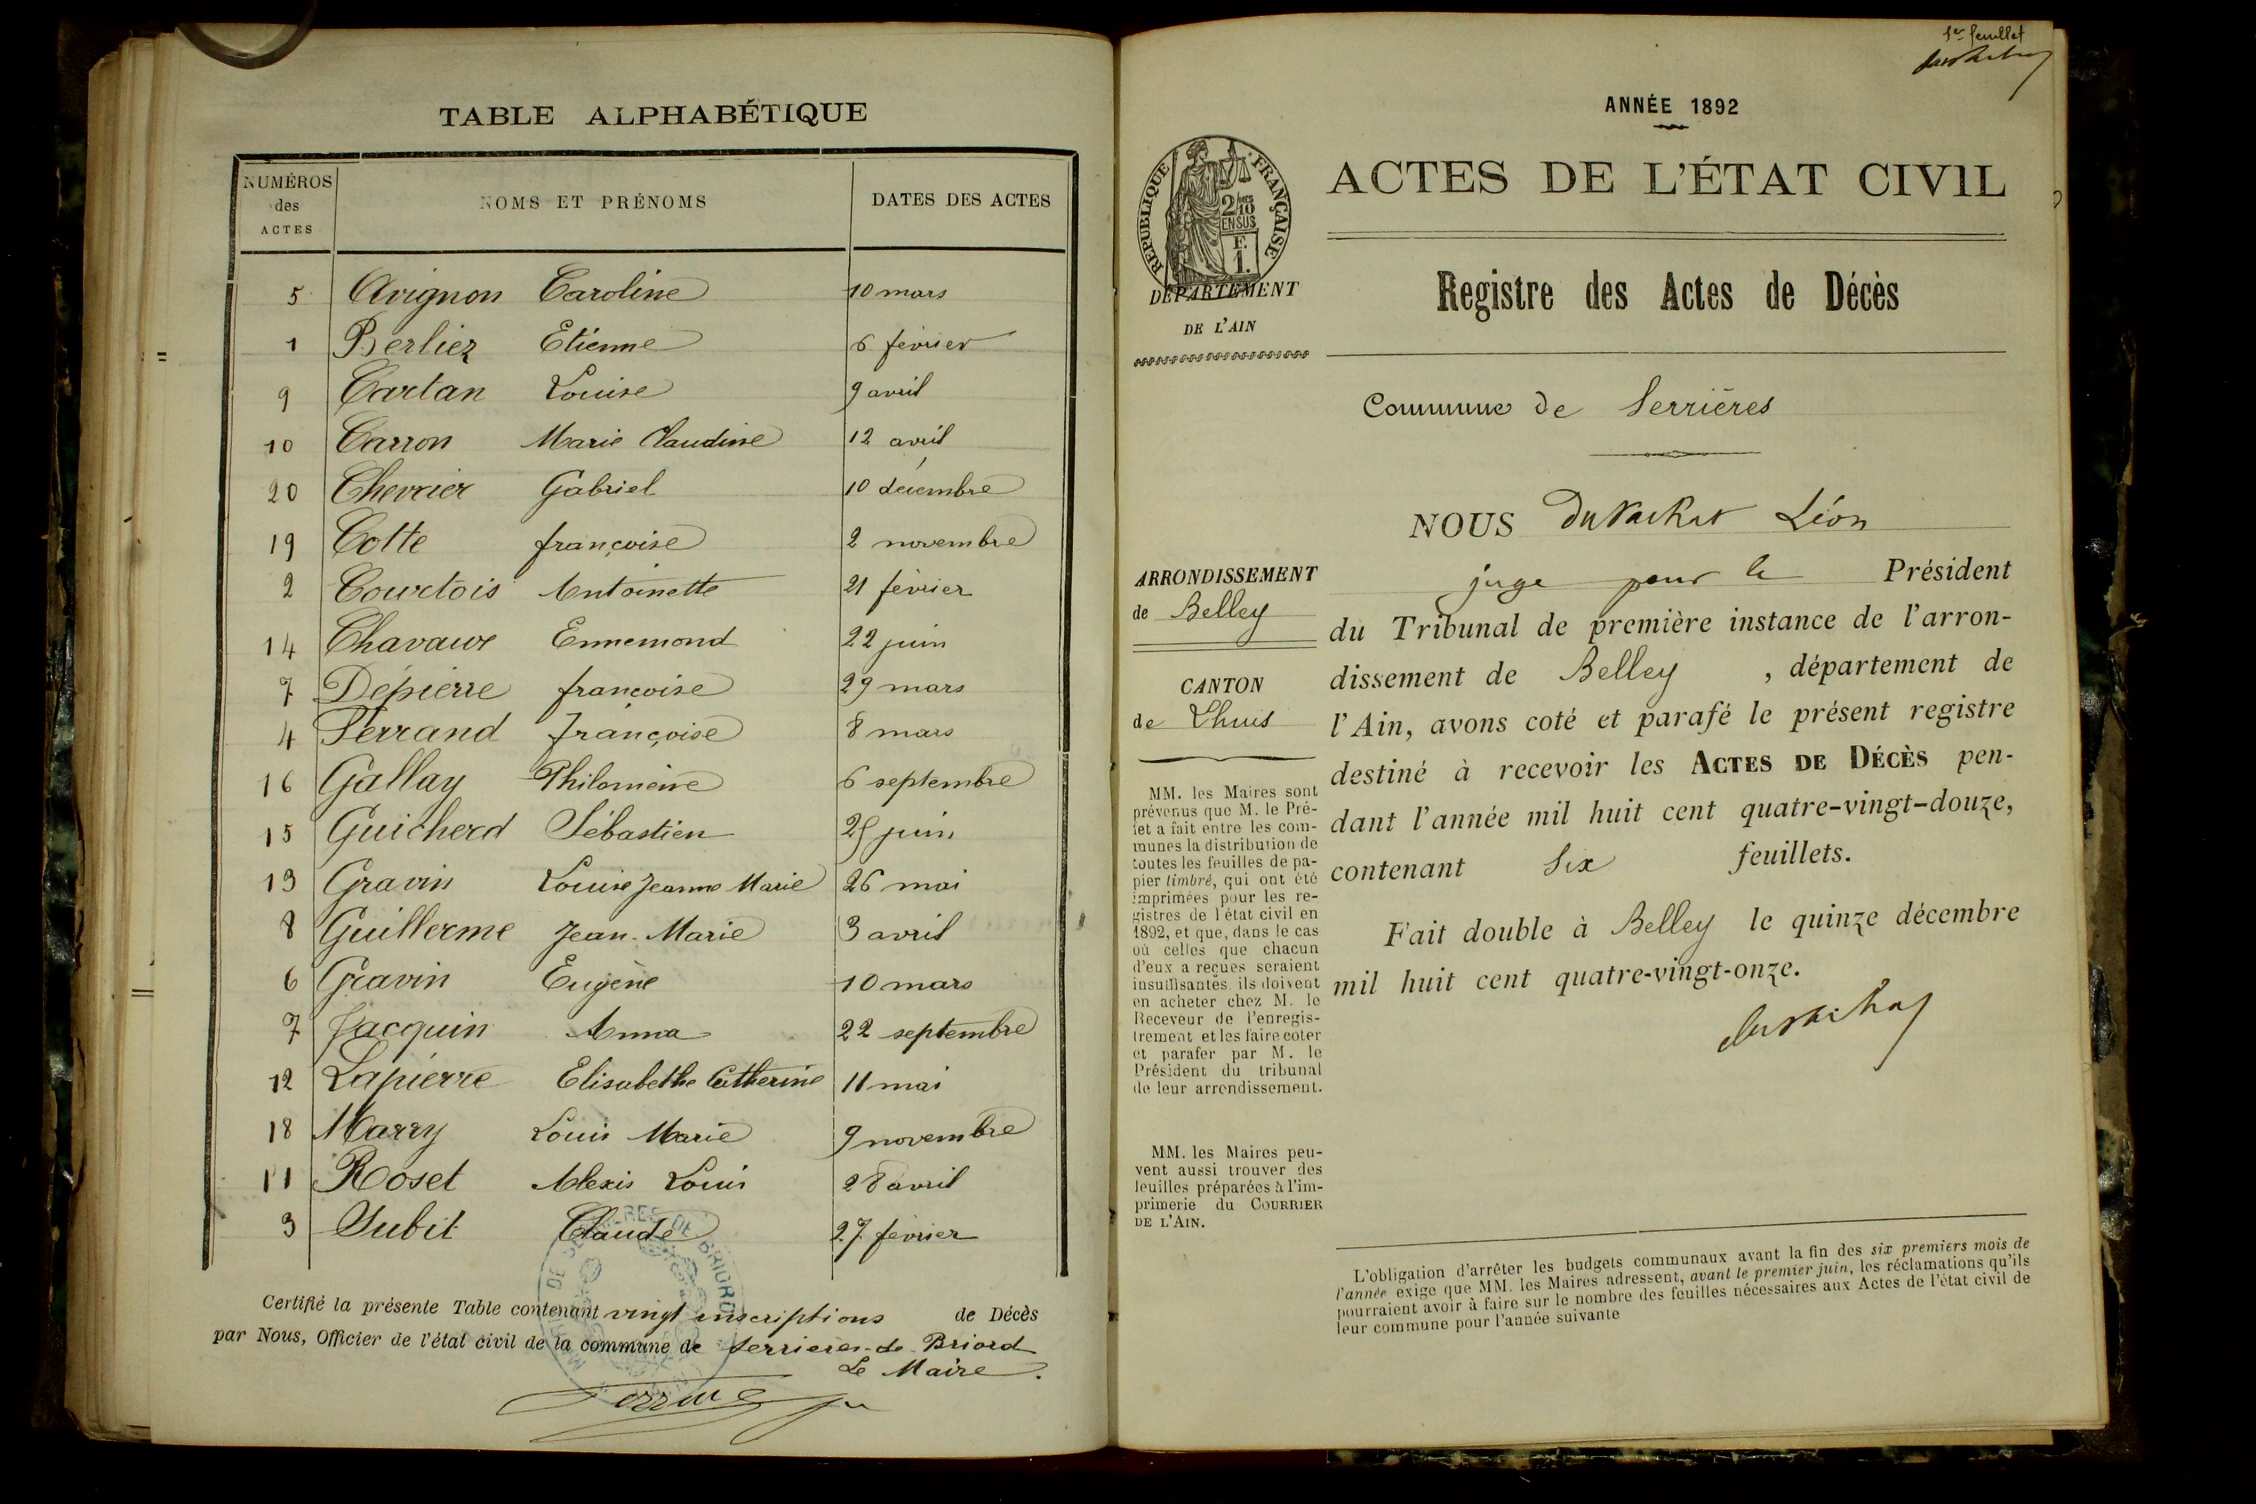 TABLE ALPHABÉTIQUE
NUMÉROS des ACTES NOMS ET PRÉNOMS DATES DES ACTES
5 Avignon Caroline 10 mars
1 Berlier Etienne 6 février
9 Cartan Louise 9 avril
10 Carron Marie Claudine 12 avril
20 Chevrier Gabriel 10 décembre
19 Cotte françoise 2 novembre
2 Courtois Antoinette 21 février
14 Chavaux Ennemond 22 juin
7 Dépierre françoise 29 mars
4 Ferrand françoise 8 mars
16 Gallay Philomène 6 septembre
15 Guicherd Sébastien 25 juin
13 Gravin Louise Jeanne Marie 26 mai
8 Guillerme Jean-Marie 3 avril
6 Gravin Eugène 10 mars
7 Jacquin Anna 22 septembre
12 Lapierre Elisabethe Catherine 11 mai
18 Marry Louis Marie 9 novembre
11 Roset Alexis Louis 28 avril
3 Subit Claude 27 février
Certifié la présente Table contenant vingt inscriptions de Décès
par Nous, Officier de l'état civil de la commune de Serrières-de Briord
Le Maire.
1er feuillet
ANNÉE 1892
RÉPUBLIQUE FRANÇAISE
2/10 EN SUS
F. 1.
ACTES DE L'ÉTAT CIVIL
DÉPARTEMENT
DE L'AIN
Registre des Actes de Décès
Commune de Serrières
ARRONDISSEMENT
de Belley
CANTON
de Lhuis
MM. les Maires sont
prévenus que M. le Pré-
fet a fait entre les com-
munes la distribution de
toutes les feuilles de pa-
pier timbré, qui ont été
imprimées pour les re-
gistres de l'état civil en
1892, et que, dans le cas
où celles que chacun
d'eux a reçues seraient
insuffisantes, ils doivent
en acheter chez M. le
Receveur de l'enregis-
trement et les faire coter
et parafer par M. le
Président du tribunal
de leur arrondissement.
MM. les Maires peu-
vent aussi trouver des
feuilles préparées à l'im-
primerie du COURRIER
DE L'AIN.
NOUS Duvachat Léon
juge pour le Président
du Tribunal de première instance de l'arron-
dissement de Belley , département de
l'Ain, avons coté et parafé le présent registre
destiné à recevoir les ACTES DE DÉCÈS pen-
dant l'année mil huit cent quatre-vingt-douze,
contenant Six feuillets.
Fait double à Belley le quinze décembre
mil huit cent quatre-vingt-onze.
L'obligation d'arrêter les budgets communaux avant la fin des six premiers mois de
l'année exige que MM. les Maires adressent, avant le premier juin, les réclamations qu'ils
pourraient avoir à faire sur le nombre des feuilles nécessaires aux Actes de l'état civil de
leur commune pour l'année suivante